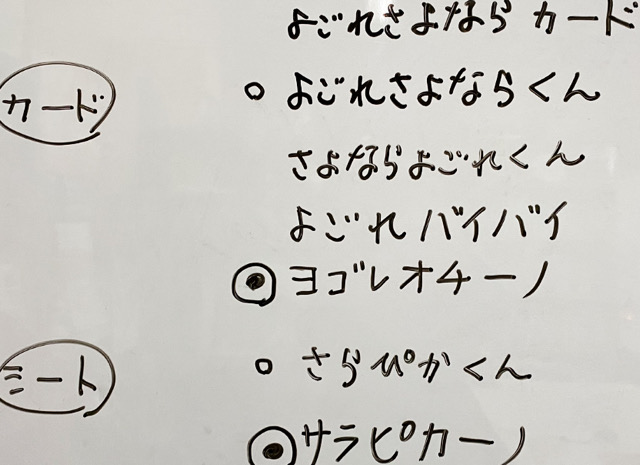 よごれさよなら カード
カード
○ よごれさよならくん
さよならよごれくん
よごれバイバイ
◎ ヨゴレオチーノ
ミート
○ さらぴかくん
◎ サラピカーノ